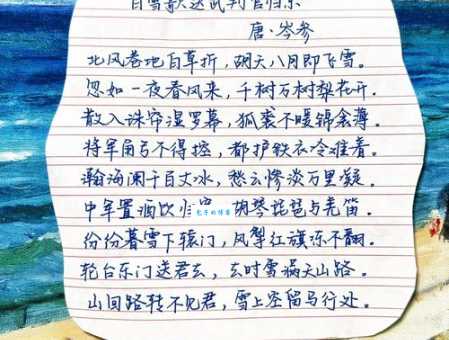 白雪歌送武判官归京
唐·岑参
北风卷地百草折，胡天八月即飞雪。
忽如一夜春风来，千树万树梨花开。
散入珠帘湿罗幕，狐裘不暖锦衾薄。
将军角弓不得控，都护铁衣冷难着。
瀚海阑干百丈冰，愁云惨淡万里凝。
中军置酒饮归，胡琴琵琶与羌笛。
纷纷暮雪下辕门，风掣红旗冻不翻。
轮台东门送君去，去时雪满天山路。
山回路转不见君，雪上空留马行处。